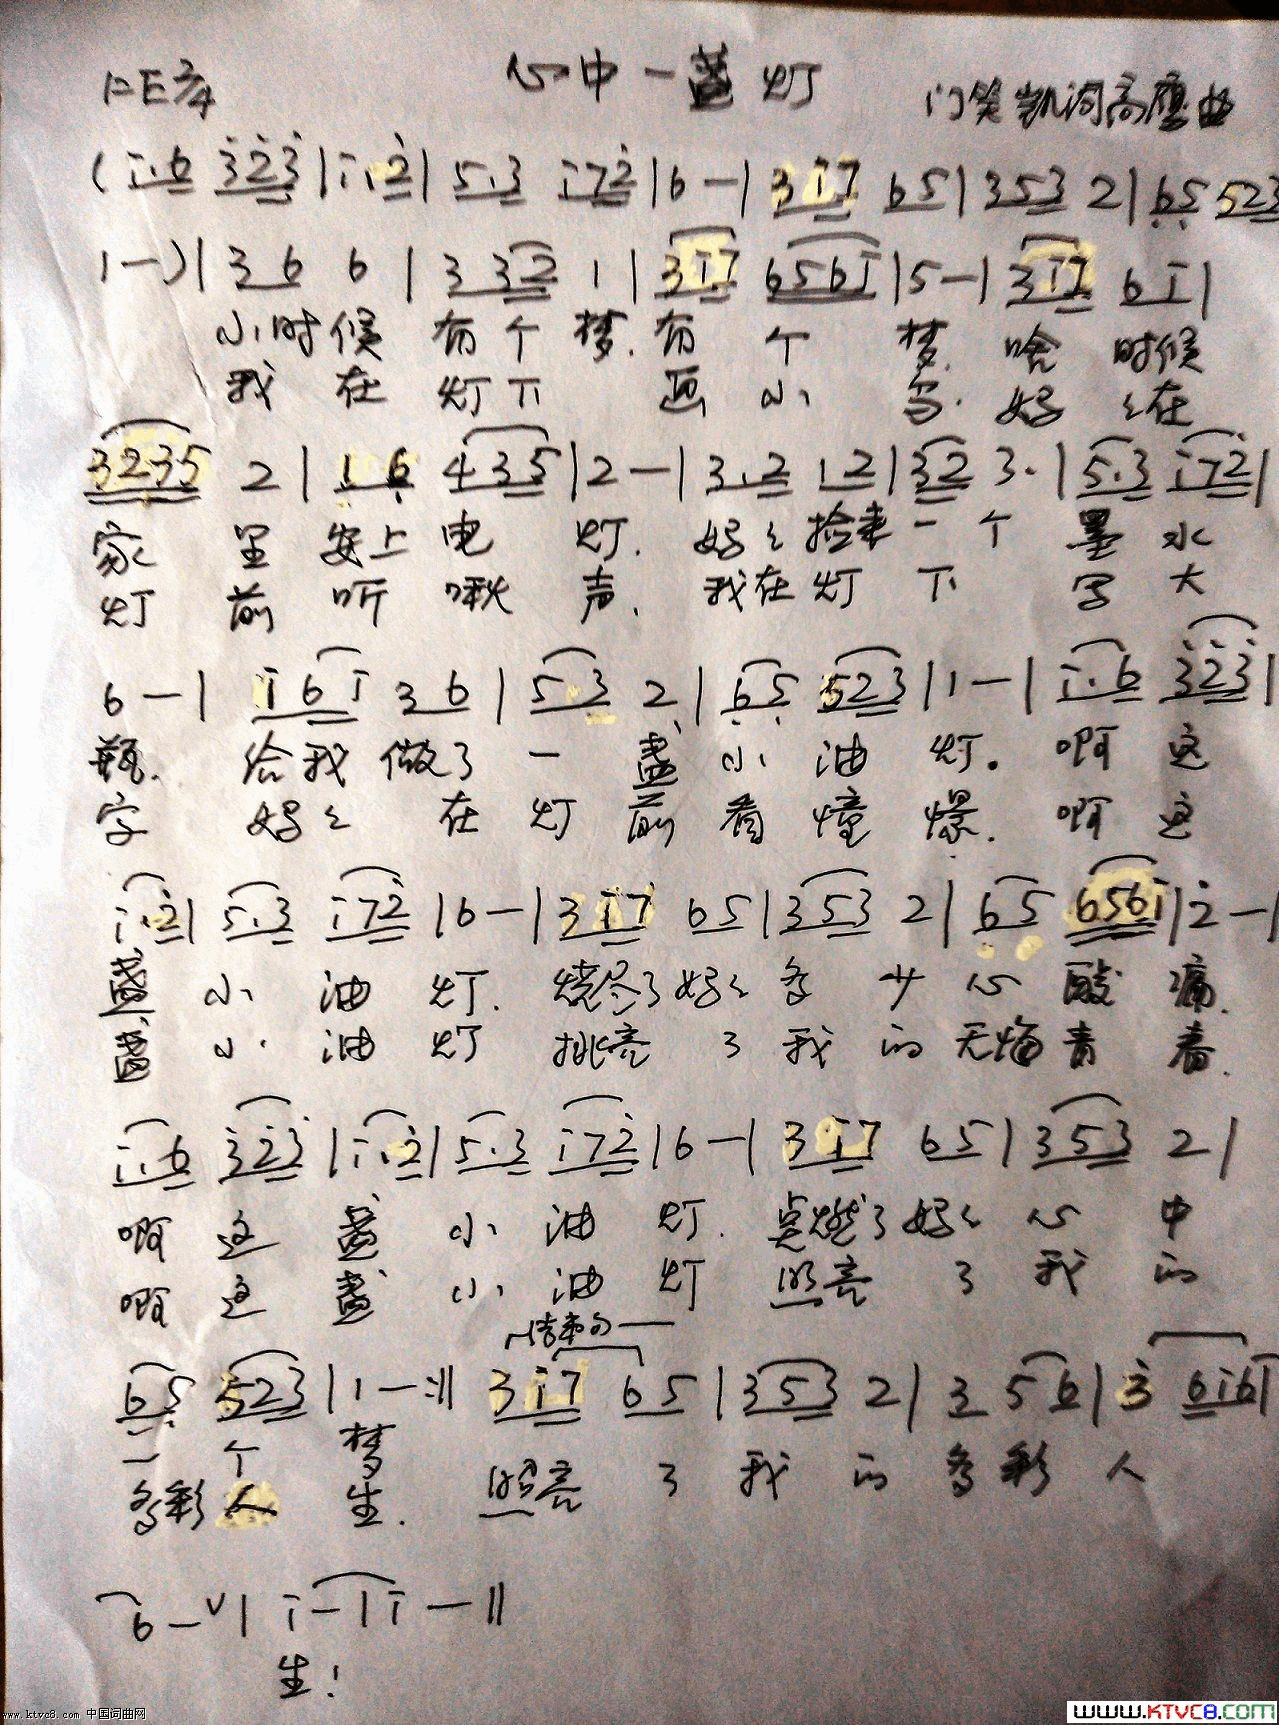 1=E 2/4
心中一盏灯
门笑凯词高鹰曲
(i·6 323|i·2|5·3 i72|6—|3i7 65|353 2|65 523
1—)|3 6 6|3 32 1|3i7 656i|5—|3i7 6i|
小时候 有个梦.有个梦.啥时候
我在灯下 画小鸟.妈妈在
3235 2|1 6 435|2—|3·2 12|32 3·|5·3 i72|
家里安上电灯.妈妈捡来一个墨水
灯前听啾声.我在灯下写大
6—|i6i 36|5·3 2|65 523|1—|i·6 323|
瓶.给我做了一盏小油灯.啊这
字 妈妈在灯前看憧憬.啊这
i·2|5·3 i72|6—|3i7 65|353 2|65 656i|2—|
盏小油灯.烧尽了妈妈多少心酸痛.
盏小油灯 挑亮了我的无悔青春.
i·6 323|i·2|5·3 i72|6—|3i7 65|353 2|
啊这盏小油灯.点燃了妈妈心中
啊这盏小油灯 照亮了我的
结束句
65 523|1—:‖3i7 65|353 2|3 56|3 6i6|
一个梦
多彩人生.照亮了我的多彩人
6—∨|i—|i—‖
生!
www.ktvc8.com 中国词曲网
WWW.KTVC8.COM